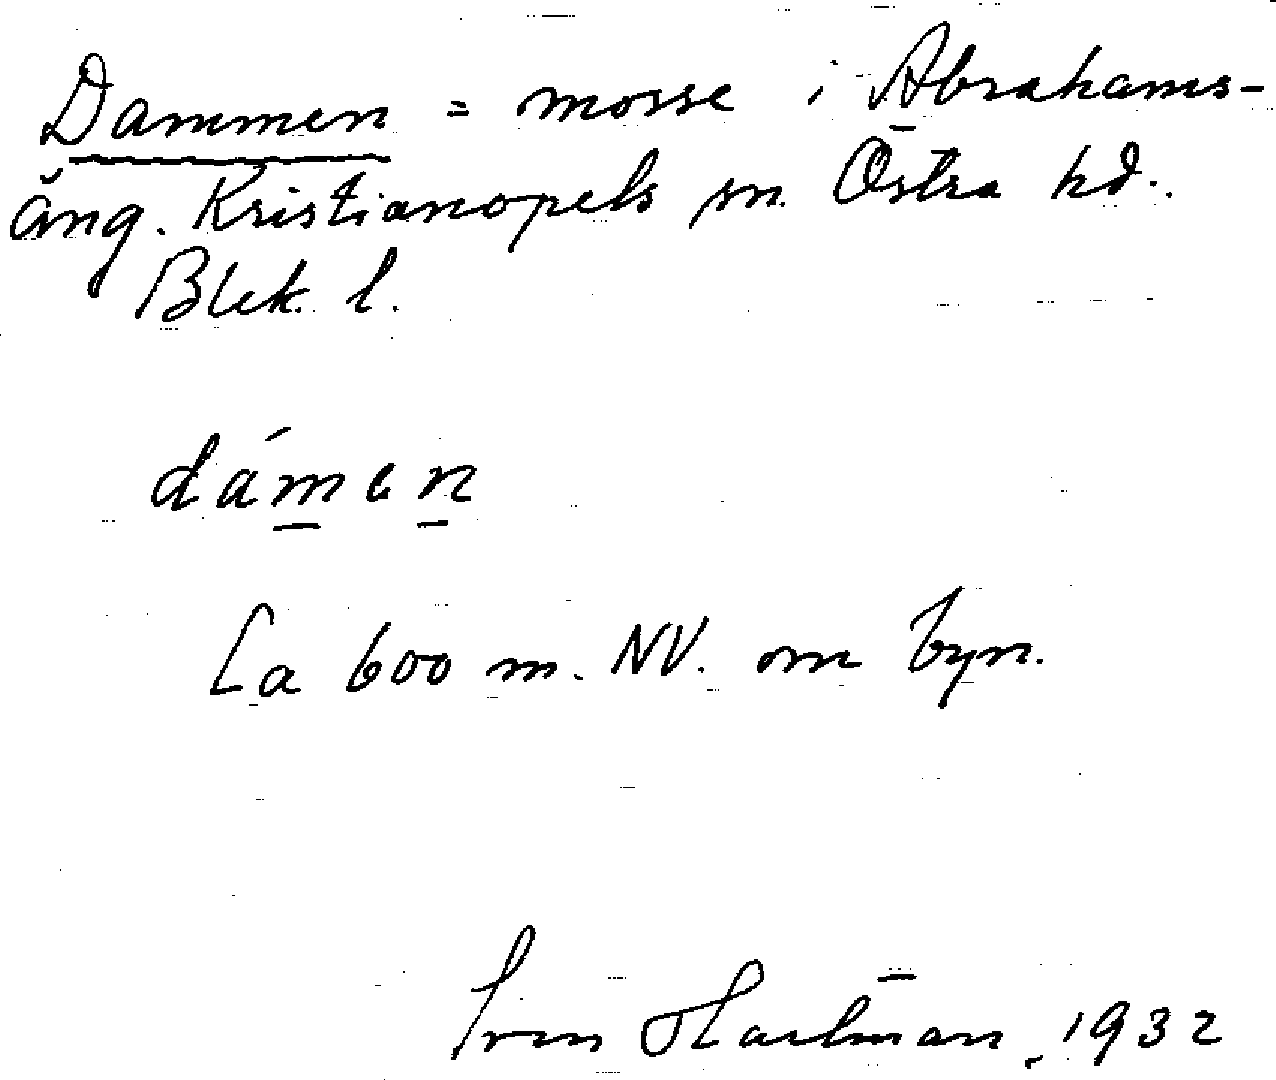 Dammen = mosse i Abrahams-
äng. Kristianopels sn. Östra hd.
Blek. l.
dámen
Ca 600 m. NV. om byn.
Sven Hartman, 1932